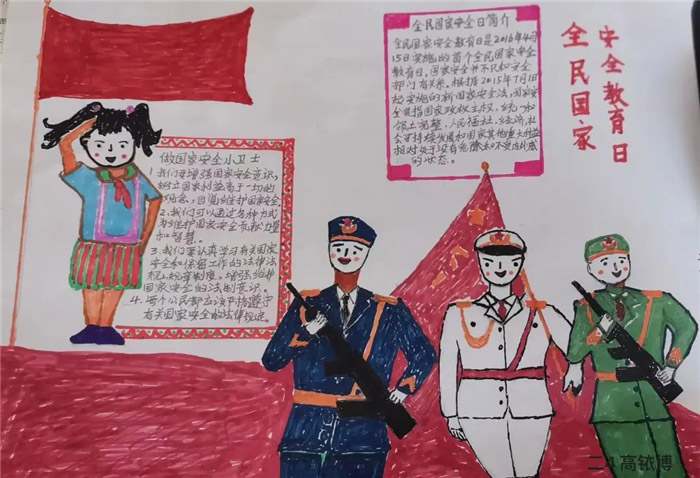 全民国家安全日简介
全民国家安全教育日是2016年4月
15日实施的首个全民国家安全
教育日。国家安全并不只和安全
部门有关系。根据2015年7月1日
起实施的新国家安全法,国家安
全是指国家政权、主权、统一和
领土完整、人民福祉、经济、社
会可持续发展和国家其他重大利益
相对处于没有危险和不受内外威
的状态。
安全教育日
全民国家
做国家安全小卫士
1.我们要增强国家安全意识,
树立国家利益高于一切的
维护国家安全
2.我们可以通过各种方式
为维护国家安全贡献力量
和智慧。
3.我们要认真学习有关国家
安全和保密工作的法律法
规规章制度。增强维护
国家安全的法制意识。
4.每个公民都应该严格遵守
有关国家安全的法律规定。
高铱博